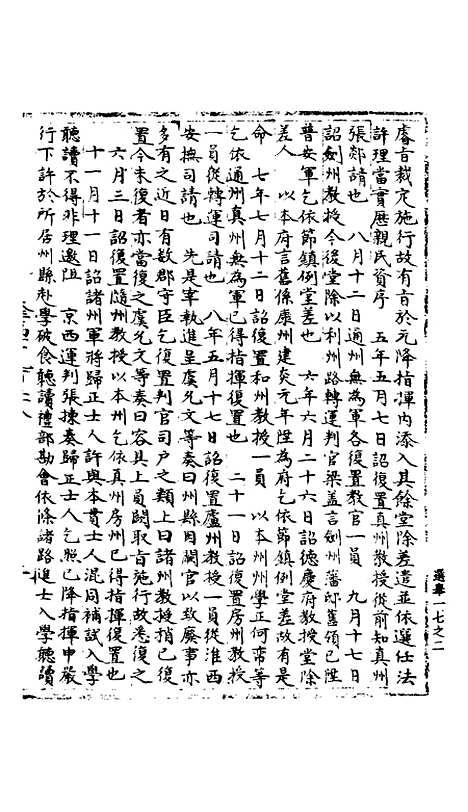 睿旨裁定施行故有旨於元降指揮内添入其餘堂除差遣並依選任法
許理當實歷親民資序　五年五月七日詔復置真州教授從前知真州
張郯請也　八月十二日通州無為軍各復置教官一員　九月十七日
詔劍州教授今後堂除以利州路轉運判官梁盖言劍州藩邸舊領已陞
普安軍乞依節鎮例堂差也　六年六月二十六日詔德慶府教授堂除
差人　以本府言舊係康州建炎元年陞為府乞依節鎮例堂差故有是
命　七年七月十二日詔復置和州教授一員　以本州州學正何蠻等
乞依通州真州無為軍已得指揮復置也　二十一日詔復置房州教授
一員從轉運司請也　八年五月十七日詔復置廬州教授一員從淮西
安撫司請也　先是宰執進呈虞允文等奏曰州縣因闕官以致廢事亦
多有之近日有數郡守臣乞復置判官司户之類上曰諸州教授捎已復
置今未復者亦當復之虞允文等奏曰容具上員闕取旨施行故悉復之
六月三日詔復置隨州教授以本州乞依真州房州已得指揮復置也
十一月十一日詔諸州軍將歸正士人許與本貫士人混同補試入學
聽讀不得非理邀阻　京西運判張揀奏歸正士人乞照已降指揮申嚴
行下許於所居州縣赴學破食聽讀禮部勘會依條諸路進士入學聽讀
選舉一七之二